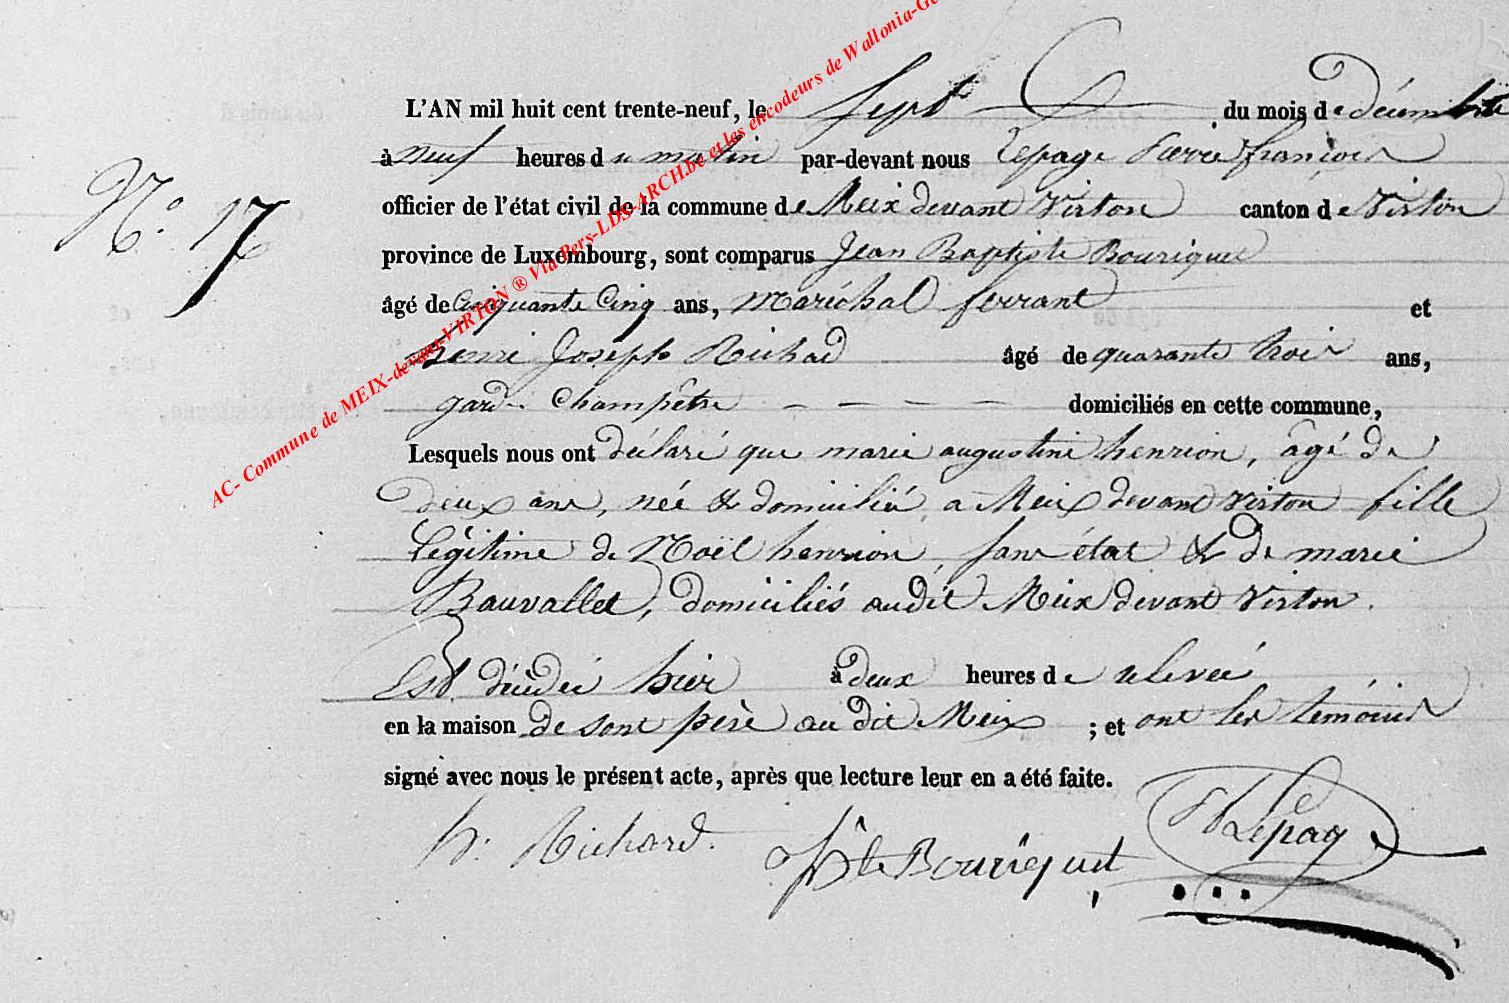 AC- Commune de MEIX-devant-VIRTON ® Via Pers-LDS-ARCH.be et les encodeurs de Wallonia-Ge
N.° 17
L'AN mil huit cent trente-neuf, le sept du mois de décembre
à neuf heures du matin par-devant nous Lepage Pierre françois
officier de l'état civil de la commune de Meix devant Virton canton de Virton
province de Luxembourg, sont comparus Jean Baptiste Bouriquet
âgé de Cinquante Cinq ans, Maréchal ferrant et
henri Joseph Richard âgé de quarante trois ans,
garde Champêtre - - - - - domiciliés en cette commune,
Lesquels nous ont déclaré que marie augustine henrion, âgé de
deux ans, née & domicilié a Meix devant virton fille
Légitime de Noël henrion, sans état & de marie
Bauvallet, domiciliés audit Meix devant Virton.
Est décédée hier à deux heures de relevée
en la maison de sont père au dit Meix ; et ont les témoins
signé avec nous le présent acte, après que lecture leur en a été faite.
h. Richard. Bouriquet Lepage